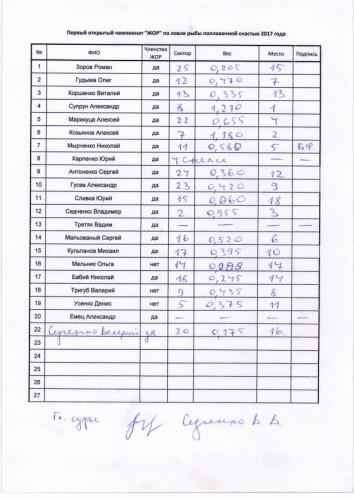 Первый открытый чемпионат "ЖОР" по ловле рыбы поплавочной снастью 2017 года
№ ФИО Членство ЖОР Сектор Вес Место Подпись
1 Зоров Роман да 25 0,205 15
2 Гудыма Олег да 12 0,470 7
3 Коршенко Виталий да 13 0,335 13
4 Супрун Александр да 8 1,210 1
5 Марикуца Алексей да 22 0,655 4
6 Козьянов Алексей да 7 1,180 2
7 Мырченко Николай да 11 0,586 5
8 Карпенко Юрий да — —
9 Антоненко Сергей да 24 0,360 12
10 Гусев Александр да 23 0,420 9
11 Сливка Юрий да 15 0,060 18
12 Седченко Владимер да 2 0,955 3
13 Третяк Вадим да — — — —
14 Мальованый Сергей да 16 0,520 6
15 Культанов Михаил да 17 0,395 10
16 Мельник Ольга нет 14 17
17 Бабий Николай да 18 0,245 14
18 Тригуб Валерий нет 9 0,435 8
19 Усенко Денис нет 5 0,375 11
20 Емец Александр да — — — —
22 Седченко Валерий да 20 0,175 16
23
24
25
26
27
Гл. судья Седченко В. В.